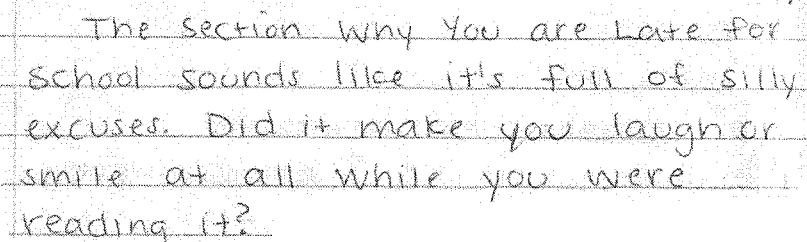 The section Why You are Late for
School sounds like it's full of silly
excuses. Did it make you laugh or
smile at all while you were
reading it?